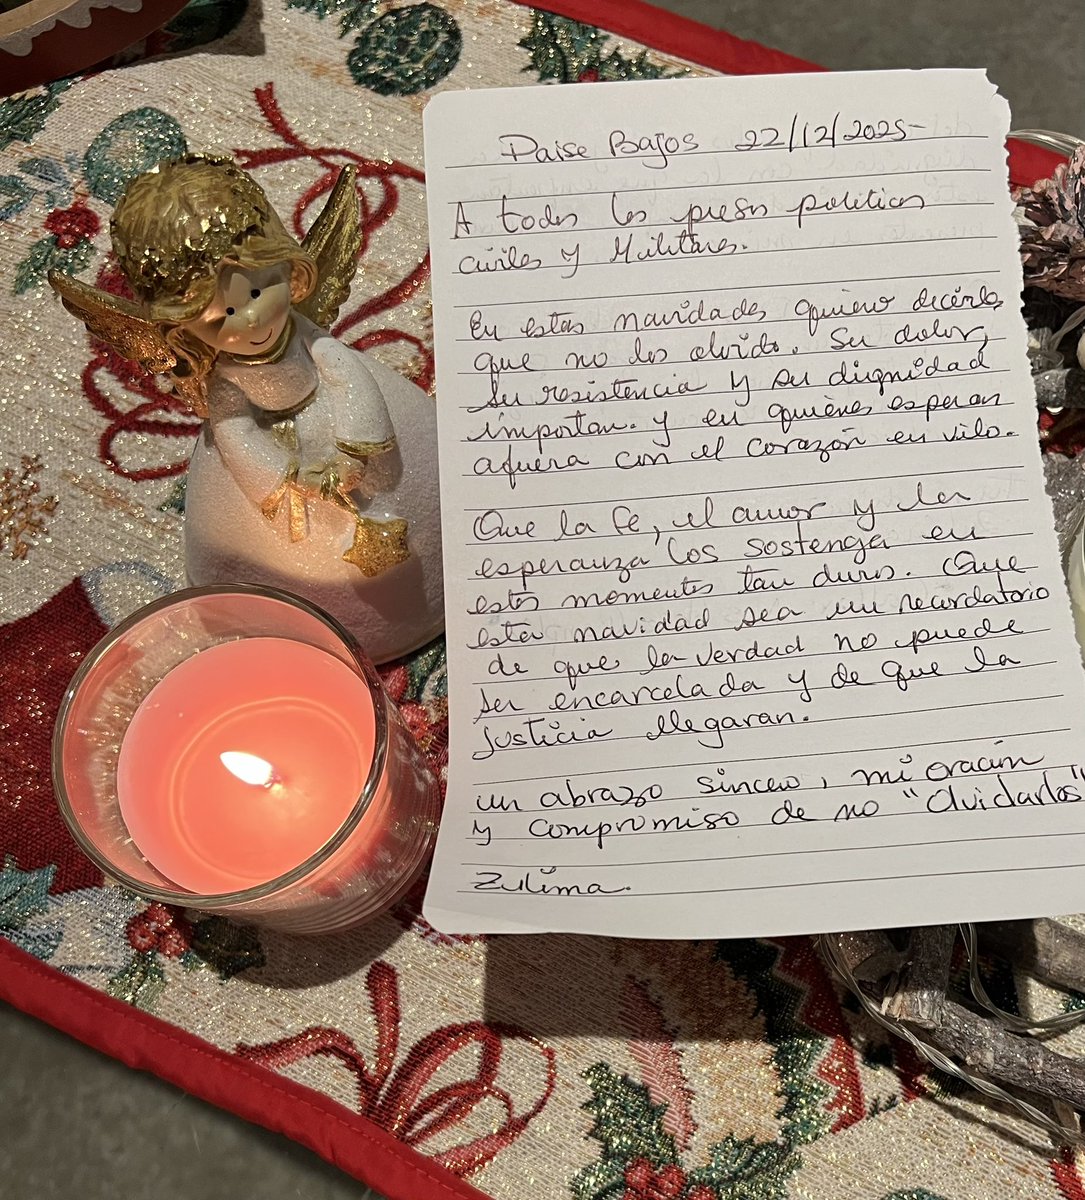 Paise Bajos 22/12/2025-
A todos los presos politicos
civiles y Militares.
En estas navidades quiero decirles
que no los olvido. Su dolor,
su resistencia y su dignidad
importan. y en quiènes esperan
afuera con el corazón en vilo.
Que la fe, el amor y la
esperanza los sostenga en
estos momentos tan duros. Que
esta navidad sea un recordatorio
de que la verdad no puede
ser encarcelada y de que la
justicia llegaran.
un abrazo sincero, mi oración
y compromiso de no "Olvidarlos"
Zulima.